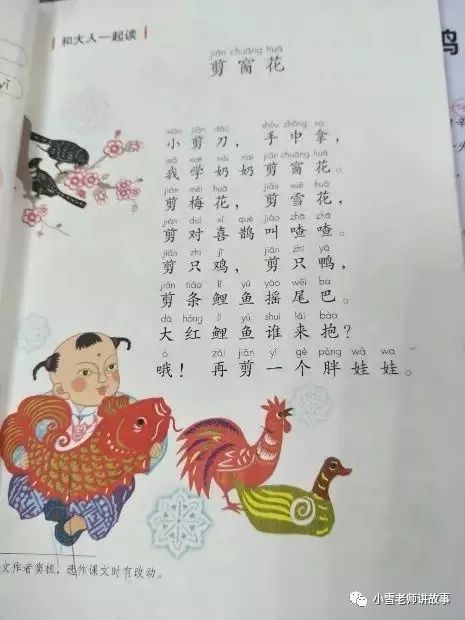 和大人一起读
jiǎn chuāng huā
剪窗花
xiǎo jiǎn dāo shǒu zhōng ná
小剪刀，手中拿，
wǒ xué nǎi nai jiǎn chuāng huā
我学奶奶剪窗花。
jiǎn méi huā jiǎn xuě huā
剪梅花，剪雪花，
jiǎn duì xǐ què jiào zhā zhā
剪对喜鹊叫喳喳。
jiǎn zhī jī jiǎn zhī yā
剪只鸡，剪只鸭，
jiǎn tiáo lǐ yú yáo wěi ba
剪条鲤鱼摇尾巴。
dà hóng lǐ yú shuí lái bào
大红鲤鱼谁来抱？
ò zài jiǎn yí gè pàng wá wa
哦！再剪一个胖娃娃。
文作者窦植，选作课文时有改动。
小雪老师讲故事